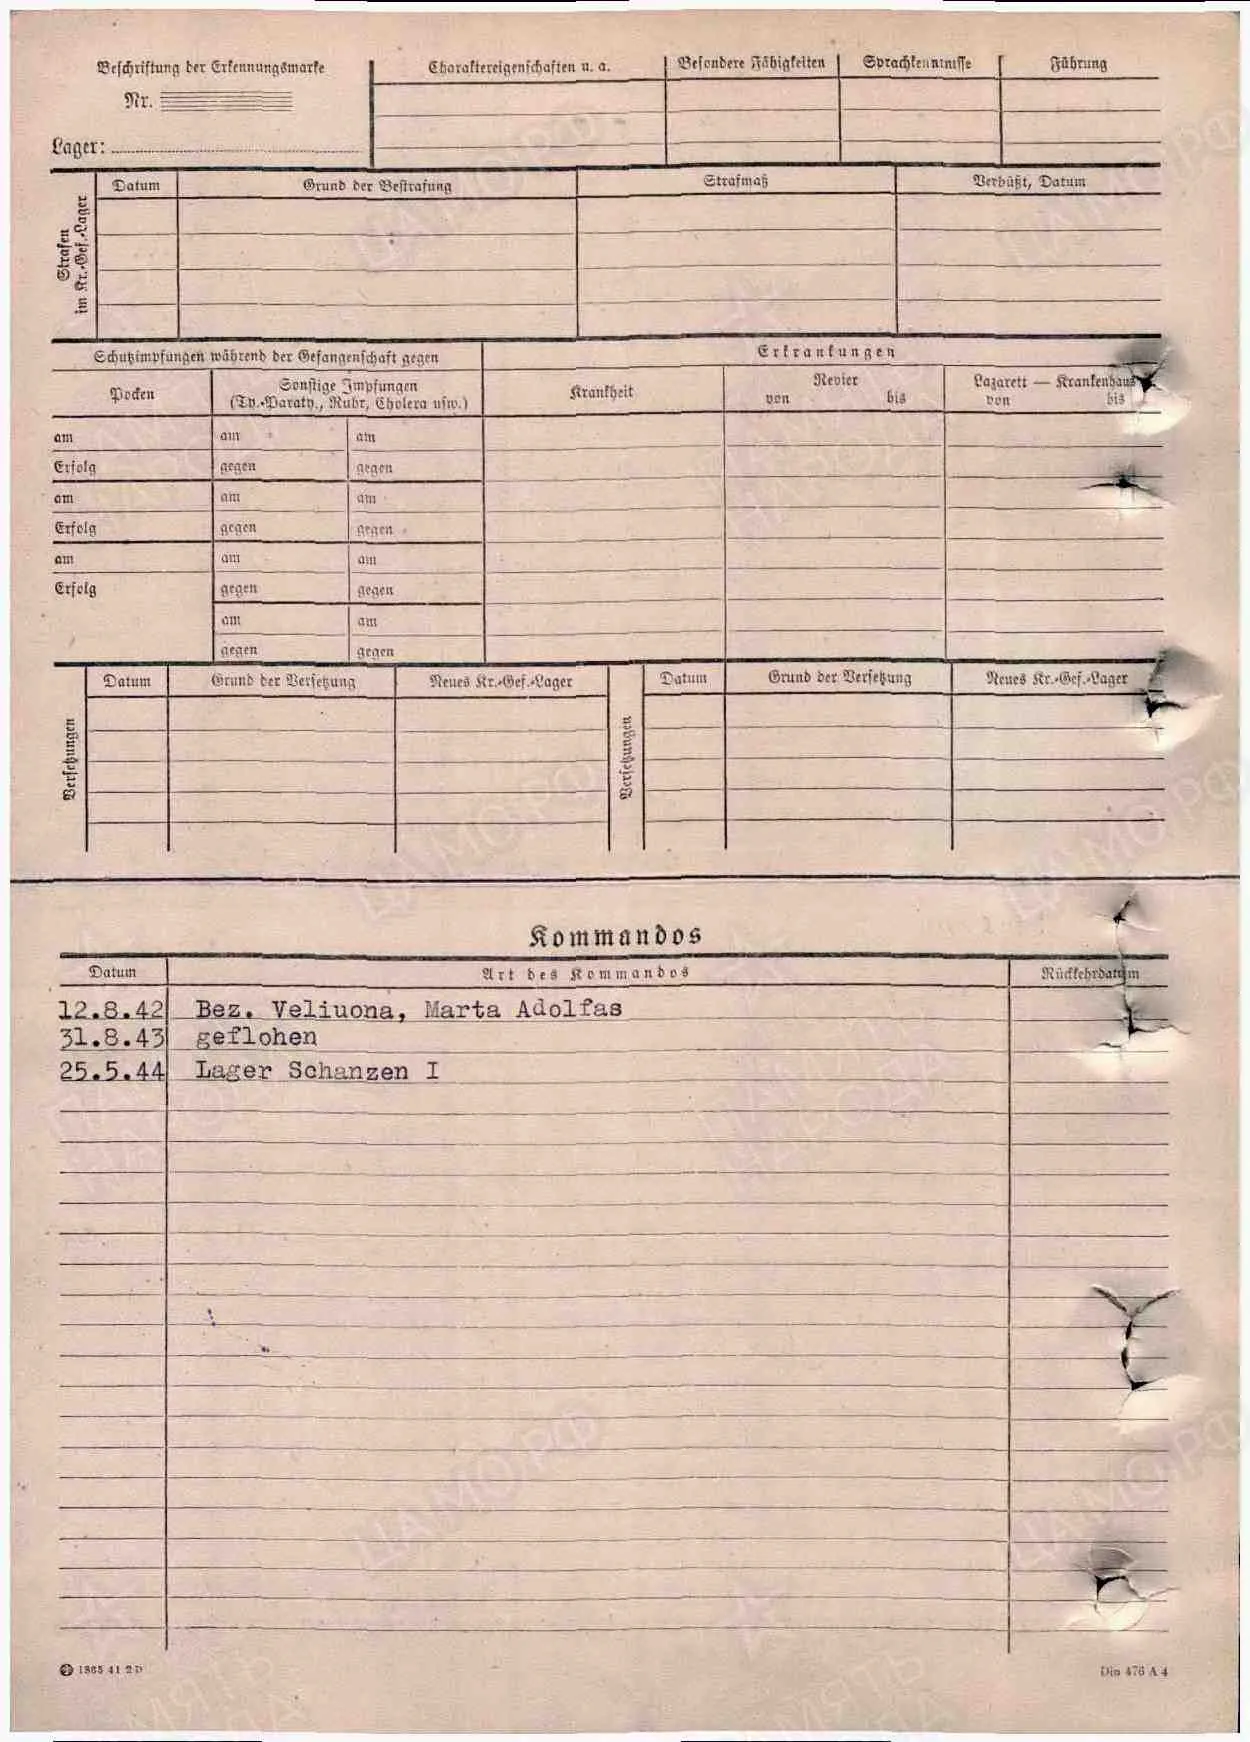 Beschriftung der Erkennungsmarke
Nr.
Lager:
Charaktereigenschaften u. a.
Besondere Fähigkeiten
Sprachkenntnisse
Führung
Strafen
im Kr.-Gef.-Lager
Datum
Grund der Bestrafung
Strafmaß
Verbüßt, Datum
Schutzimpfungen während der Gefangenschaft gegen
Erkrankungen
Pocken
Sonstige Impfungen
(Ty.-Paraty., Ruhr, Cholera usw.)
Krankheit
Revier
von bis
Lazarett — Krankenhaus
von bis
am am am
Erfolg gegen gegen
am am am
Erfolg gegen gegen
am am am
Erfolg gegen gegen
am am
gegen gegen
Versetzungen
Datum Grund der Versetzung Neues Kr.-Gef.-Lager
Versetzungen
Datum Grund der Versetzung Neues Kr.-Gef.-Lager
Kommandos
Datum Art des Kommandos Rückkehrdatum
12.8.42 Bez. Veliuona, Marta Adolfas
31.8.43 geflohen
25.5.44 Lager Schanzen I
1865 41 2 D
Din 476 A 4
ЦАМО РФ
ПАМЯТЬ
НАРОДА